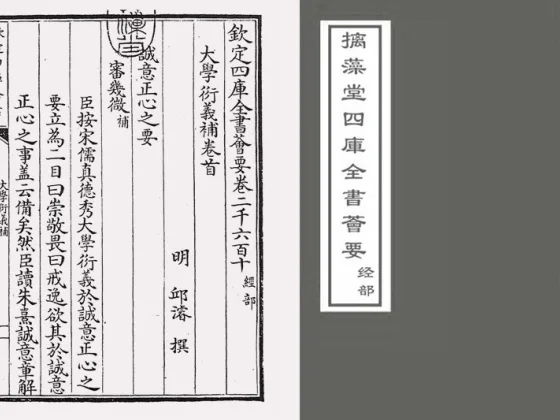 摛藻堂四庫全書薈要
经部
欽定四庫全書薈要卷二千六百十 經部
大學衍義補卷首
明 邱濬 撰
誠意正心之要
審幾微補
臣按宋儒真德秀大學衍義於誠意正心之
要立為二目曰崇敬畏曰戒逸欲其於誠意
正心之事盖云備矣然臣讀朱熹誠意章解
大學衍義補